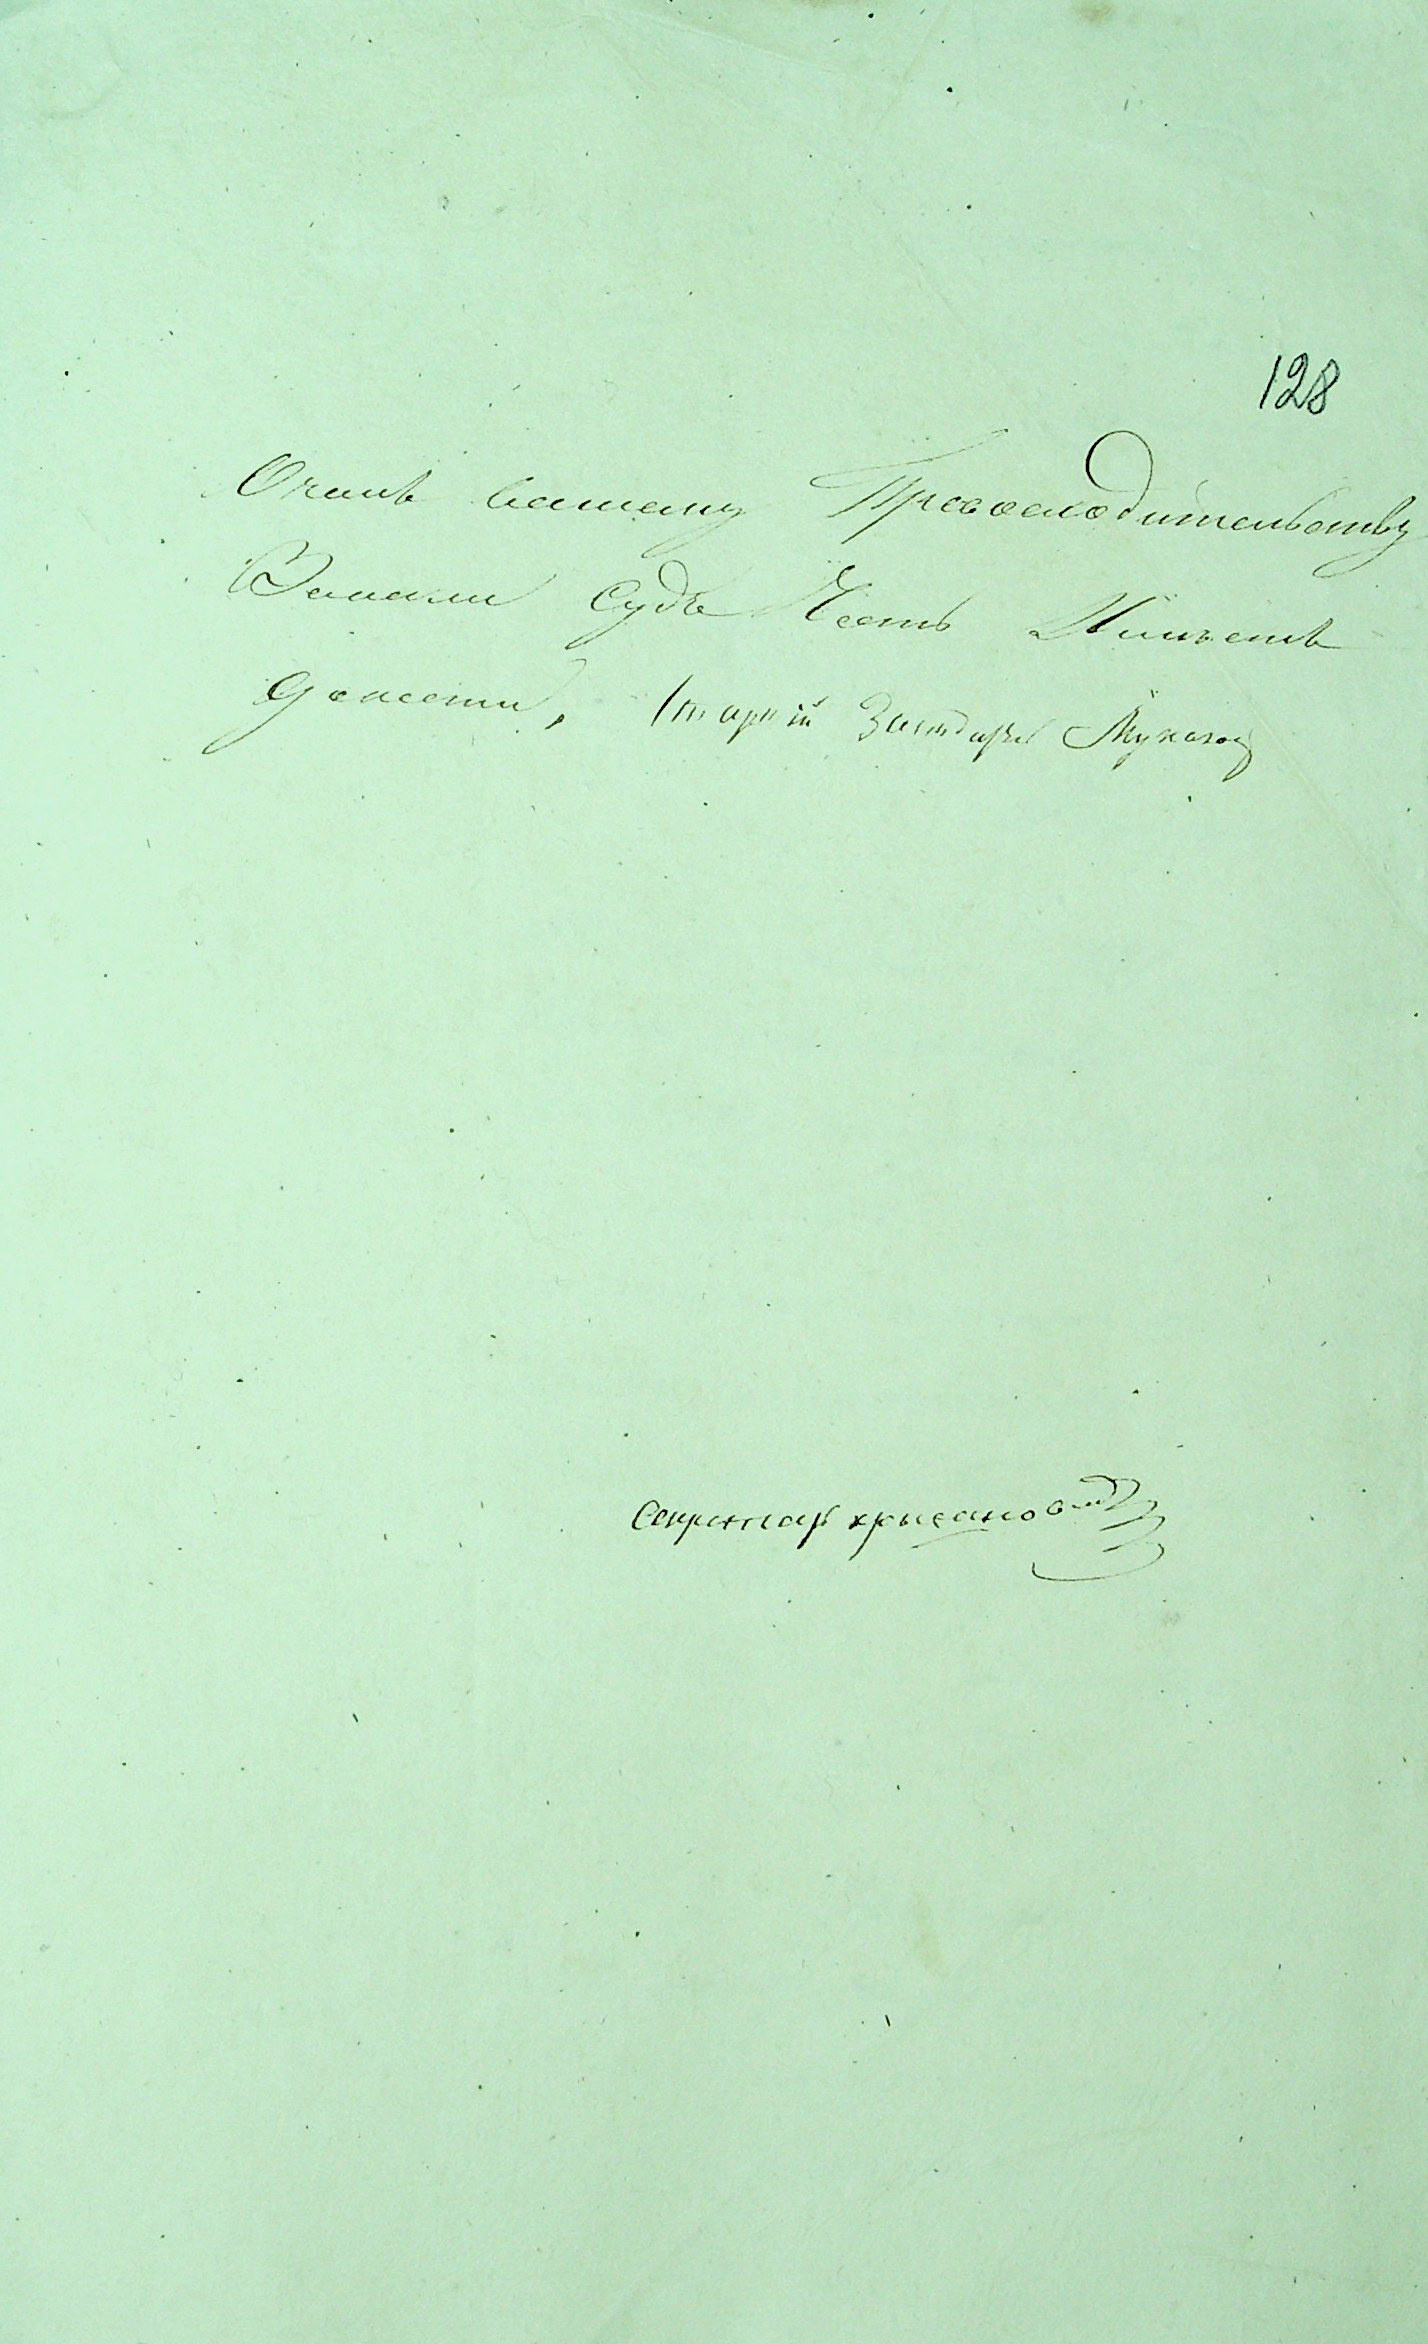 128
О чемъ вашему Превосходительству
Земскій Судъ Честь Имѣетъ
донести, Старшій Засѣдатель
Секретарь Хрисановъ